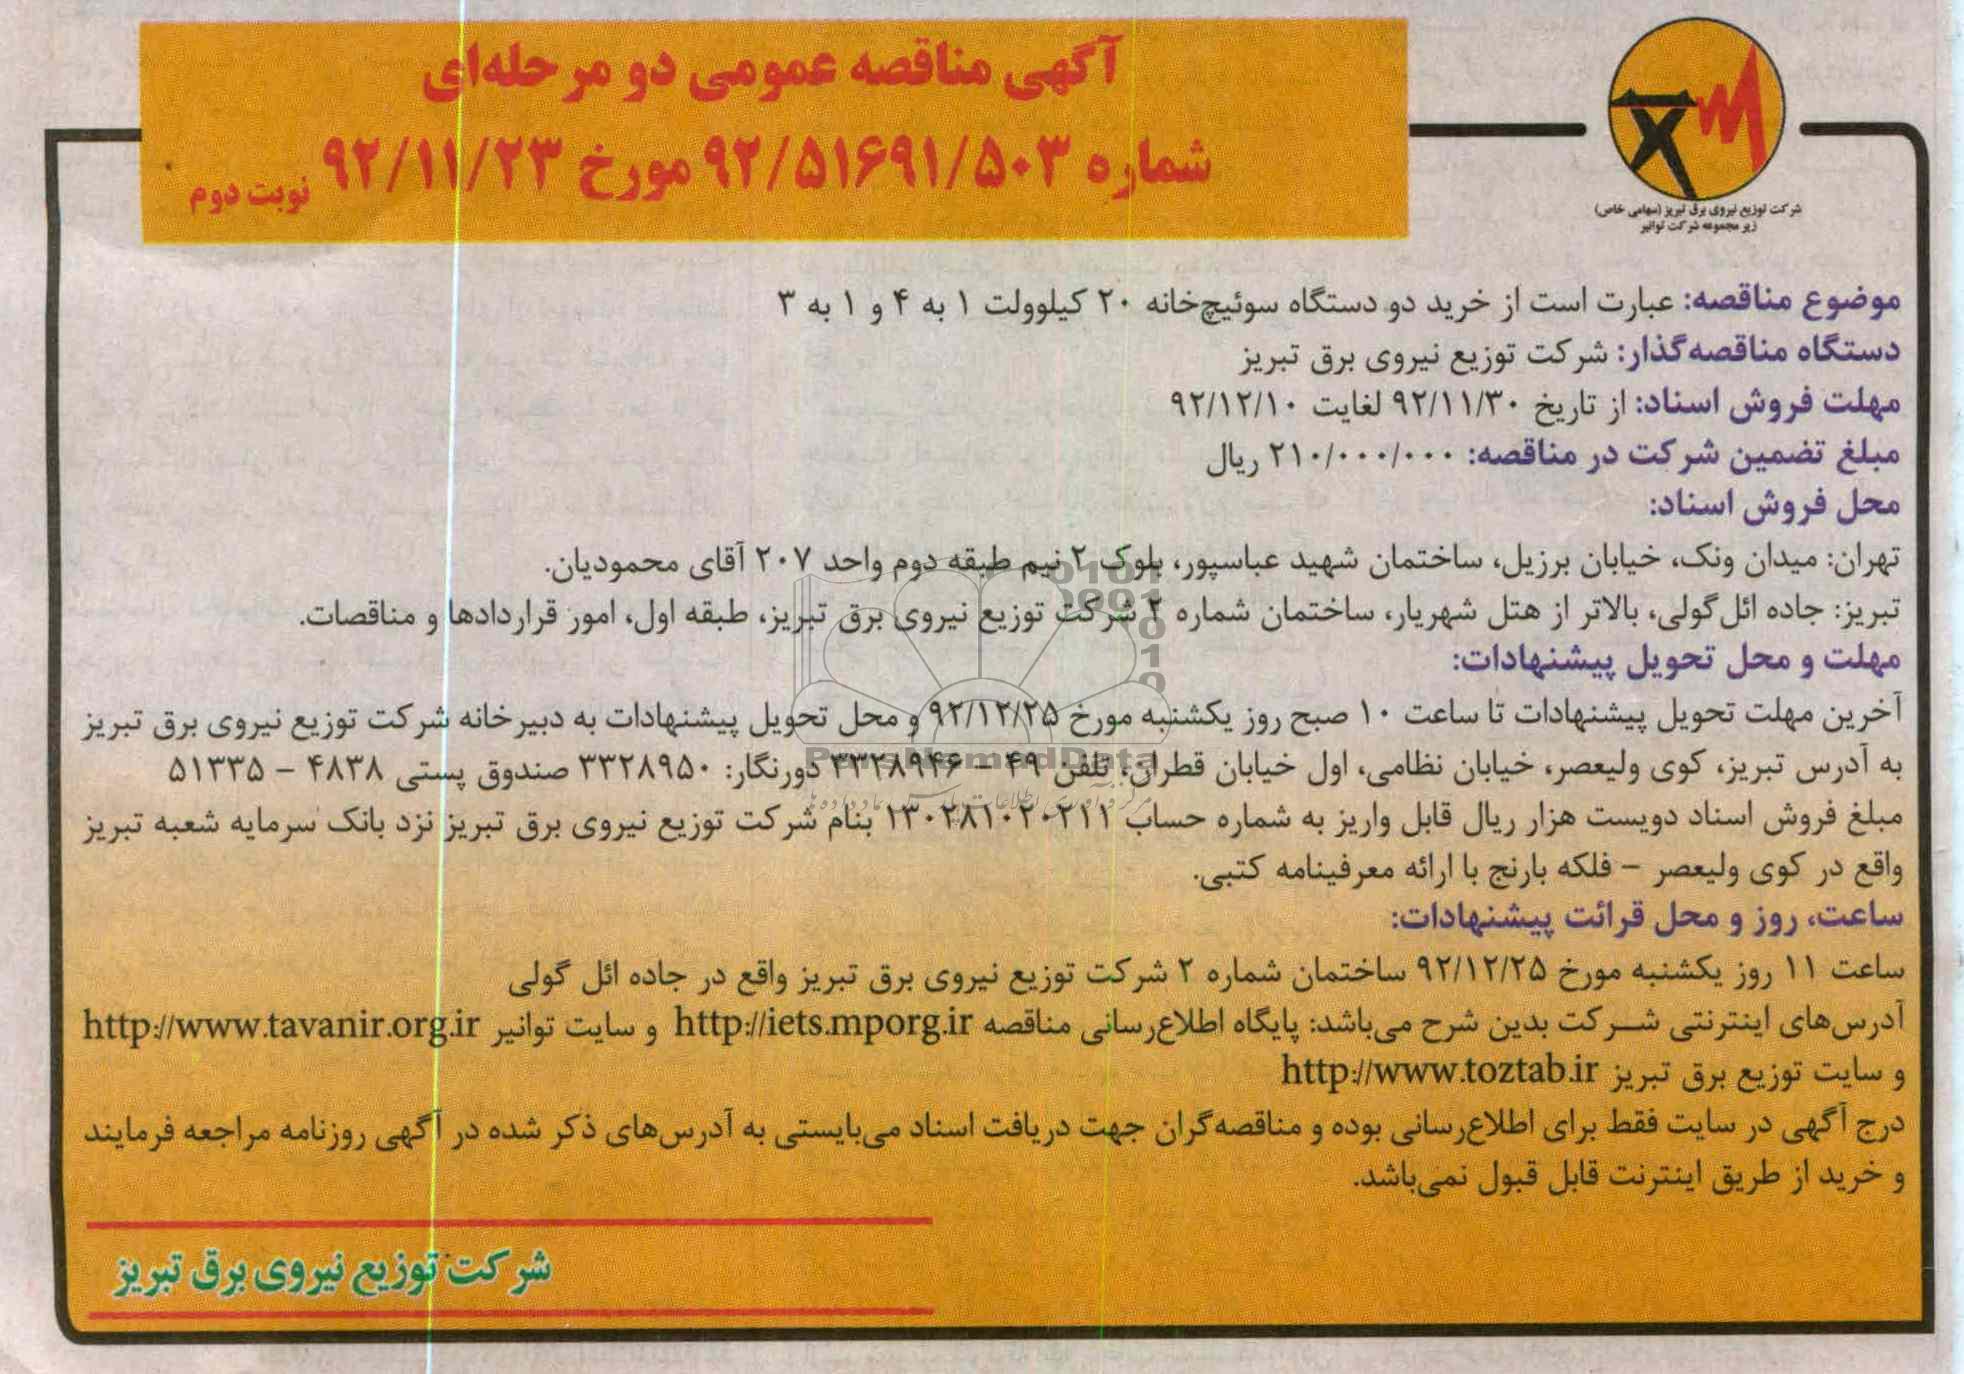 آگهی مناقصه عمومی دو مرحله‌ای
شماره ۹۲/۵۱۶۹۱/۵۰۳ مورخ ۹۲/۱۱/۲۳ نوبت دوم
شرکت توزیع نیروی برق تبریز (سهامی خاص)
زیر مجموعه شرکت توانیر
موضوع مناقصه: عبارت است از خرید دو دستگاه سوئیچ‌خانه ۲۰ کیلوولت ۱ به ۴ و ۱ به ۳
دستگاه مناقصه‌گذار: شرکت توزیع نیروی برق تبریز
مهلت فروش اسناد: از تاریخ ۹۲/۱۱/۳۰ لغایت ۹۲/۱۲/۱۰
مبلغ تضمین شرکت در مناقصه: ۲۱۰/۰۰۰/۰۰۰ ریال
محل فروش اسناد:
تهران: میدان ونک، خیابان برزیل، ساختمان شهید عباسپور، بلوک ۲ نیم طبقه دوم واحد ۲۰۷ آقای محمودیان.
تبریز: جاده ائل‌گولی، بالاتر از هتل شهریار، ساختمان شماره ۲ شرکت توزیع نیروی برق تبریز، طبقه اول، امور قراردادها و مناقصات.
مهلت و محل تحویل پیشنهادات:
آخرین مهلت تحویل پیشنهادات تا ساعت ۱۰ صبح روز یکشنبه مورخ ۹۲/۱۲/۲۵ و محل تحویل پیشنهادات به دبیرخانه شرکت توزیع نیروی برق تبریز
به آدرس تبریز، کوی ولیعصر، خیابان نظامی، اول خیابان قطران، تلفن ۴۹ – ۳۳۲۸۹۴۶ دورنگار: ۳۳۲۸۹۵۰ صندوق پستی ۴۸۳۸ – ۵۱۳۳۵
مبلغ فروش اسناد دویست هزار ریال قابل واریز به شماره حساب ۱۳۰۲۸۱۰۲۰۲۱۱ بنام شرکت توزیع نیروی برق تبریز نزد بانک سرمایه شعبه تبریز
واقع در کوی ولیعصر – فلکه بارنج با ارائه معرفینامه کتبی.
ساعت، روز و محل قرائت پیشنهادات:
ساعت ۱۱ روز یکشنبه مورخ ۹۲/۱۲/۲۵ ساختمان شماره ۲ شرکت توزیع نیروی برق تبریز واقع در جاده ائل گولی
آدرس‌های اینترنتی شرکت بدین شرح می‌باشد: پایگاه اطلاع‌رسانی مناقصه http://iets.mporg.ir و سایت توانیر http://www.tavanir.org.ir
و سایت توزیع برق تبریز http://www.toztab.ir
درج آگهی در سایت فقط برای اطلاع‌رسانی بوده و مناقصه‌گران جهت دریافت اسناد می‌بایستی به آدرس‌های ذکر شده در آگهی روزنامه مراجعه فرمایند
و خرید از طریق اینترنت قابل قبول نمی‌باشد.
شرکت توزیع نیروی برق تبریز